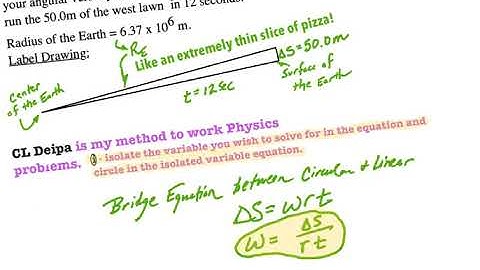 your angular
run the 50.0m of the west lawn in 12 seconds
Radius of the Earth = 6.37 x 10⁶ m.
R_E
Label Drawing:
Like an extremely thin slice of pizza!
ΔS=50.0m
Center
of the Earth
t=12sec
Surface of
the Earth
CL Deipa is my method to work Physics
problems. - isolate the variable you wish to solve for in the equation and
circle in the isolated variable equation.
Bridge Equation between Circular + linear
ΔS=wrt
w= ΔS
rt